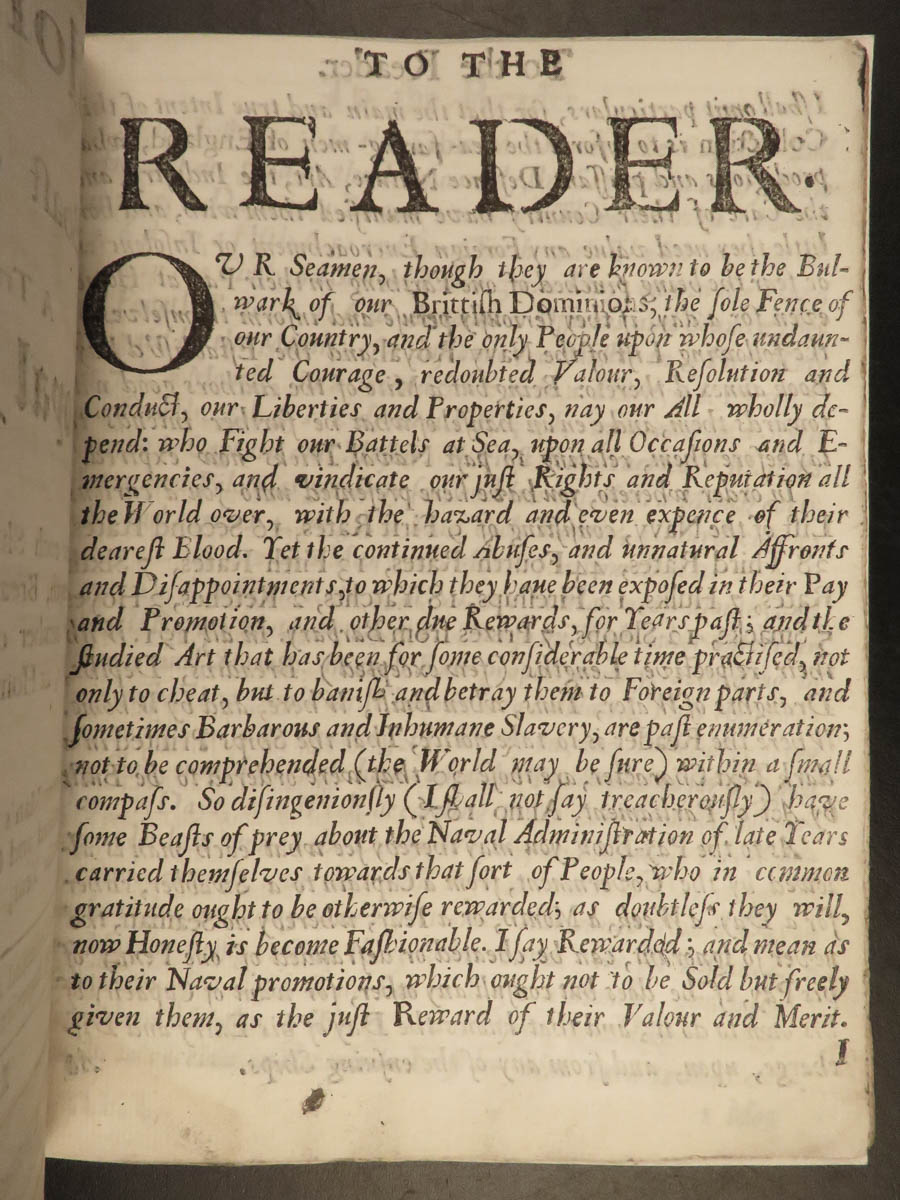 TO THE
READER.
OUR Seamen, though they are known to be the Bul-
wark of our Brittiſh Dominions; the ſole Fence of
our Country, and the only People upon whoſe undaun-
ted Courage, redoubted Valour, Reſolution and
Conduct, our Liberties and Properties, nay our All wholly de-
pend: who Fight our Battels at Sea, upon all Occaſions and E-
mergencies, and vindicate our juſt Rights and Reputation all
the World over, with the hazard and even expence of their
deareſt Blood. Yet the continued Abuſes, and unnatural Affronts
and Diſappointments, to which they haue been expoſed in their Pay
and Promotion, and other due Rewards, for Years paſt; and the
ſtudied Art that has been for ſome conſiderable time practiſed, not
only to cheat, but to baniſh and betray them to Foreign parts, and
ſometimes Barbarous and Inhumane Slavery, are paſt enumeration;
not to be comprehended (the World may be ſure) within a ſmall
compaſs. So diſingeniouſly (I ſhall not ſay treacherouſly) have
ſome Beaſts of prey about the Naval Adminiſtration of late Years
carried themſelves towards that ſort of People, who in common
gratitude ought to be otherwiſe rewarded; as doubtleſs they will,
now Honeſty is become Faſhionable. I ſay Rewarded; and mean as
to their Naval promotions, which ought not to be Sold but freely
given them, as the juſt Reward of their Valour and Merit.
I